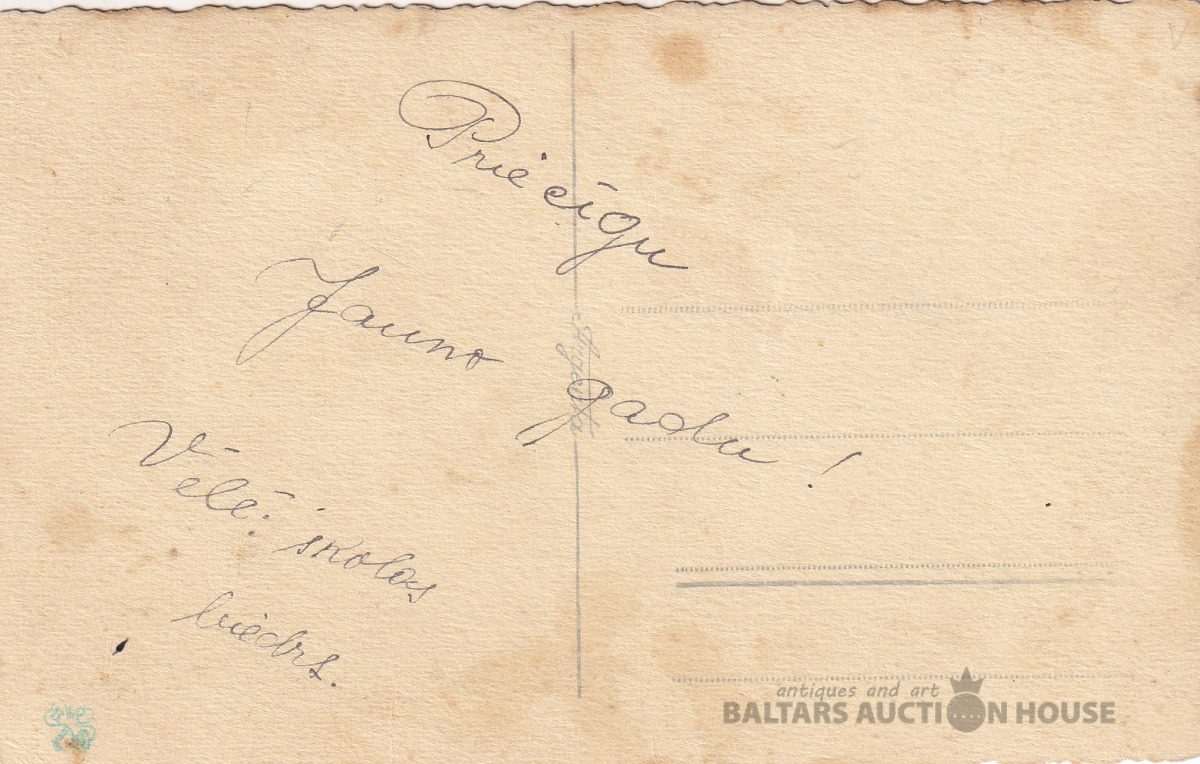 Priecīgu
Jauno gadu!
Vēlē: skolas
biedrs.
antiques and art
BALTARS AUCTION HOUSE